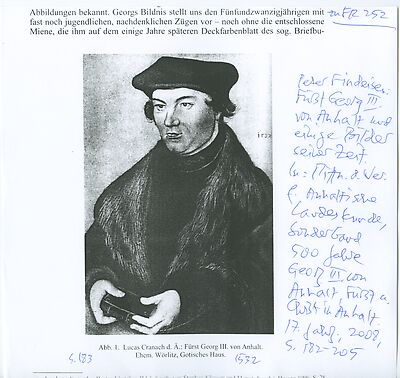 Abbildungen bekannt. Georgs Bildnis stellt uns den Fünfundzwanzigjährigen mit
fast noch jugendlichen, nachdenklichen Zügen vor – noch ohne die entschlossene
Miene, die ihm auf dem einige Jahre späteren Deckfarbenblatt des sog. Briefbu-
zu FR 252
1532
Peter Findeisen:
Fürst Georg III.
von Anhalt und
einige Bilder
seiner Zeit
In: Mittn. d. Ver.
f. Anhaltische
Landeskunde,
Sonderband
500 Jahre
Georg III. von
Anhalt. Fürst u.
Christ in Anhalt.
17. Jahrg., 2008,
S. 182-205
Abb. 1. Lucas Cranach d. Ä.: Fürst Georg III. von Anhalt.
Ehem. Wörlitz, Gotisches Haus.
S. 183
1532